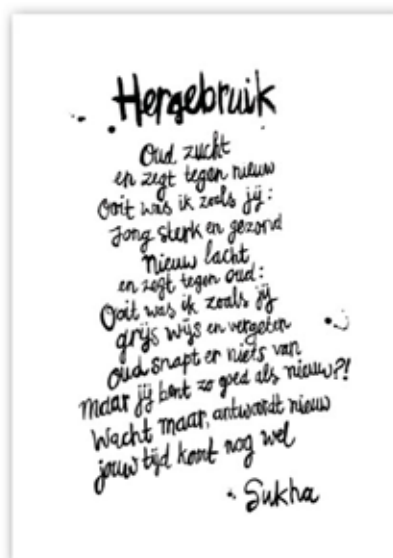 Hergebruik
Oud zucht
en zegt tegen nieuw
Ooit was ik zoals jij:
Jong sterk en gezond
Nieuw lacht
en zegt tegen oud:
Ooit was ik zoals jij
grijs wijs en vergeten
Oud snapt er niets van
Maar jij bent zo goed als nieuw?!
Wacht maar, antwoordt nieuw
jouw tijd komt nog wel
Sukha